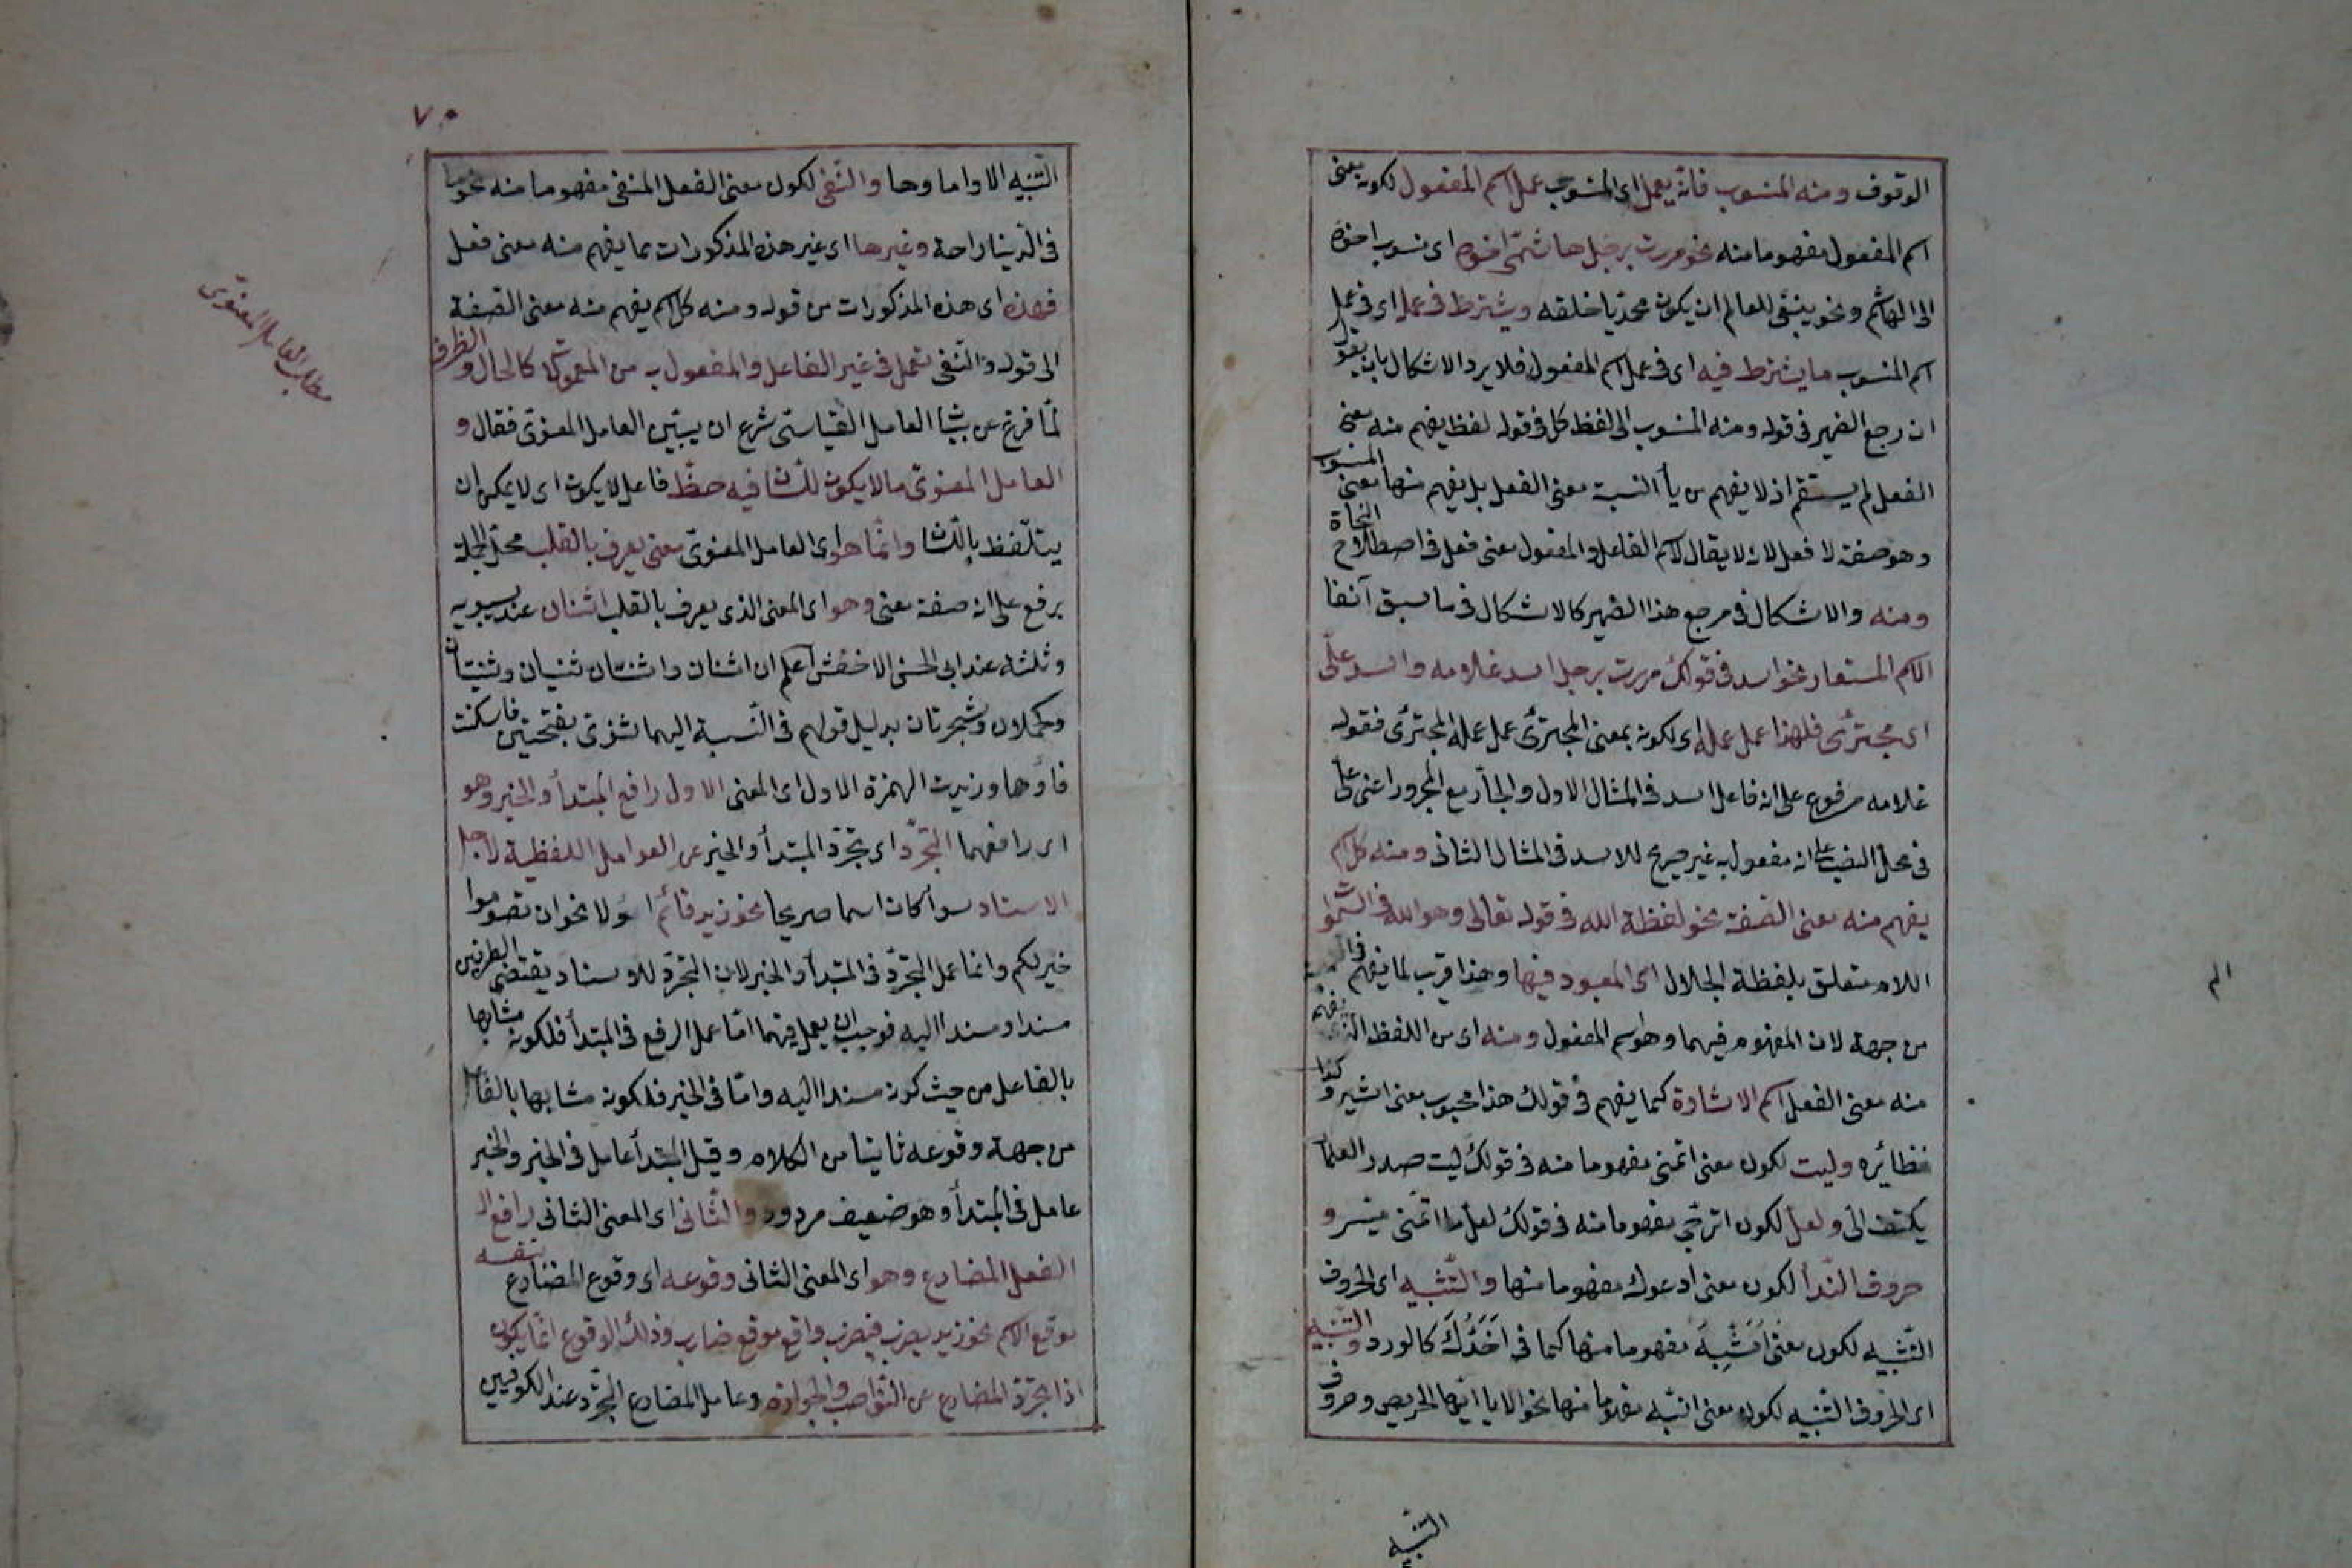 الوقوف ومنه المنسوب فانه يعمل اى المنسوب عمل اسم المفعول لكونه بمعنى
اسم المفعول مفهوما منه نحو مررت برجل هاشمى اخوه اى منسوب اخوه
الى الهاشم ونحو ينبغى للعالم ان يكون محمديا خلقه ويشترط فى عمله اى فى عمل
اسم المنسوب ما يشترط فيه اى فى عمل اسم المفعول فلا يرد الاشكال بان يقول
ان رجع الضمير فى قوله ومنه المنسوب الى لفظ كل فى قوله لفظ يفهم منه معنى
الفعل لم يستقم اذ لا يفهم من يأ النسبة معنى الفعل بل يفهم منها معنى المنسوب
وهو صفة لا فعل لانه لا يقال لاسم الفاعل والمفعول معنى فعل فى اصطلاح النحاة
ومنه والاشكال فى مرجع هذا الضمير كالاشكال فى ما سبق آنفا
الاسم المستعار نحو اسد فى قولك مررت برجل اسد غلامه واسد على
اى مجترئ فلهذا عمل عمله اى لكونه بمعنى المجترئ عمل عمله المجترئ فقوله
غلامه مرفوع على انه فاعل اسد فى المثال الاول والجار مع المجرور اعنى على
فى محل النصب على انه مفعول به غير صريح للاسد فى المثال الثانى ومنه كل اسم
يفهم منه معنى الصفة نحو لفظة الله فى قوله تعالى وهو الله فى السموات
اللام متعلق بلفظة الجلال اى المعبود فيها وهذا قرب لما يفهم
من جهة لان المفهوم فيهما وهو اسم المفعول ومنه اى من اللفظ الذى يفهم
منه معنى الفعل اسم الاشارة كما يفهم فى قولك هذا محبوب معنى اشير وكذا
نظائره وليت لكون معنى اتمنى مفهوما منه فى قولك ليت صدر العلمأ
يكتفت الى ولعل لكون اترجى مفهوما منه فى قولك لعل ما اتمنى ميسر و
حروف الندأ لكون معنى ادعوك مفهوما منها والتشبيه اى الحروف
التشبيه لكون معنى اشبه مفهوما منها كما فى اخدك كالورد والتنبيه
اى الحروف التنبيه لكون معنى انبه مفهوما منها نحو الا يا ايها الحريص وحروف
التنبيه
الم
٧٠
التنبيه الا واما وها والنفى لكون معنى الفعل المنفى مفهوما منه نحو ما
فى الدنيا راحة وغيرها اى غير هذه المذكورات مما يفهم منه معنى فعل
فهذه اى هذه المذكورات من قوله ومنه كل اسم يفهم منه معنى الصفة
الى قوله والنفى تعمل فى غير الفاعل والمفعول به من المعمولات كالحال والظرف
لما فرغ عن بيان العامل القياسى شرع ان يبين العامل المعنوى فقال و
العامل المعنوى ما لا يكون للسان فيه حظ فاعل لا يكون اى لا يمكن ان
يتلفظ باللسان وانما هو اى العامل المعنوى معنى يعرف بالقلب محل الجملة
يرفع على انه صفة معنى وهو اى المعنى الذى يعرف بالقلب اثنان عند سيبويه
وثلثه عند ابى الحسن الاخفش اعلم ان اثنان واثنتان ثنيان وثنيتان
وكحملان وشجرتان بدليل قولهم فى النسبة اليهما ثنوى بفتحتين فاسكنت
فأوها وزيدت الهمزة الاول اى المعنى الاول رافع المبتدأ والخبر وهو
اى رافعهما التجرد اى تجرد المبتدأ والخبر عن العوامل اللفظية لاجل
الاسناد سوأ كان اسما صريحا نحو زيد قائم او لا نحو ان تصوموا
خير لكم وانما عمل التجرد فى المبتدأ والخبر لان التجرد للاسناد يقتضى الطرفين
مسندا ومسندا اليه فوجب ان يعمل فيهما اما عمل الرفع فى المبتدأ فلكونه مشابها
بالفاعل من حيث كونه مسندا اليه واما فى الخبر فلكونه مشابها بالفاعل
من جهة وقوعه ثانيا من الكلام وقيل المبتدأ عامل فى الخبر والخبر
عامل فى المبتدأ وهو ضعيف مردود والثانى اى المعنى الثانى رافع
الفعل المضارع وهو اى المعنى الثانى وقوعه اى وقوع المضارع بنفسه
موقع الاسم نحو زيد يضرب فيضرب واقع موقع ضارب وذلك الوقوع انما يكون
اذا تجرد المضارع عن النواصب والجوازم وعامل المضارع التجرد عند الكوفيين
مطلب العامل المعنوى